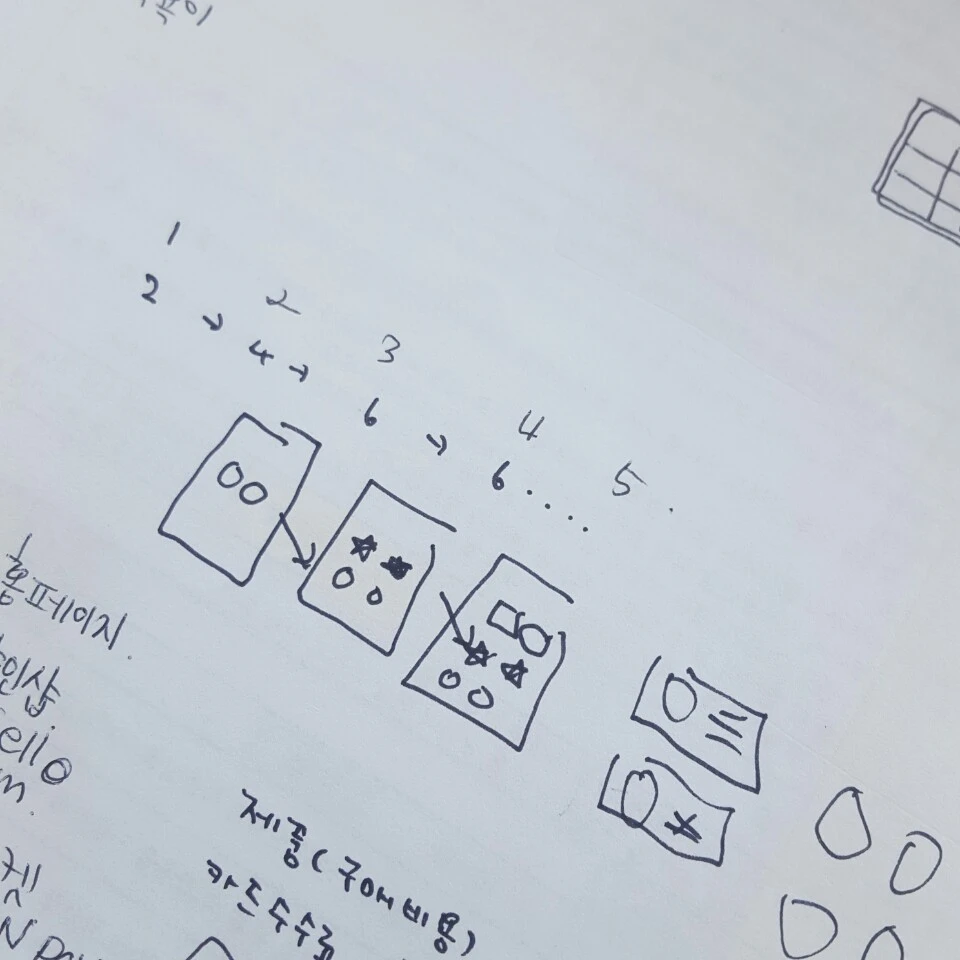 1 2 3 4 5 .
2 → 4 → 6 → 6 . . . . .
홈페이지.
인샵
ello
m.
제품(구매비용)
카드수수료
N pay